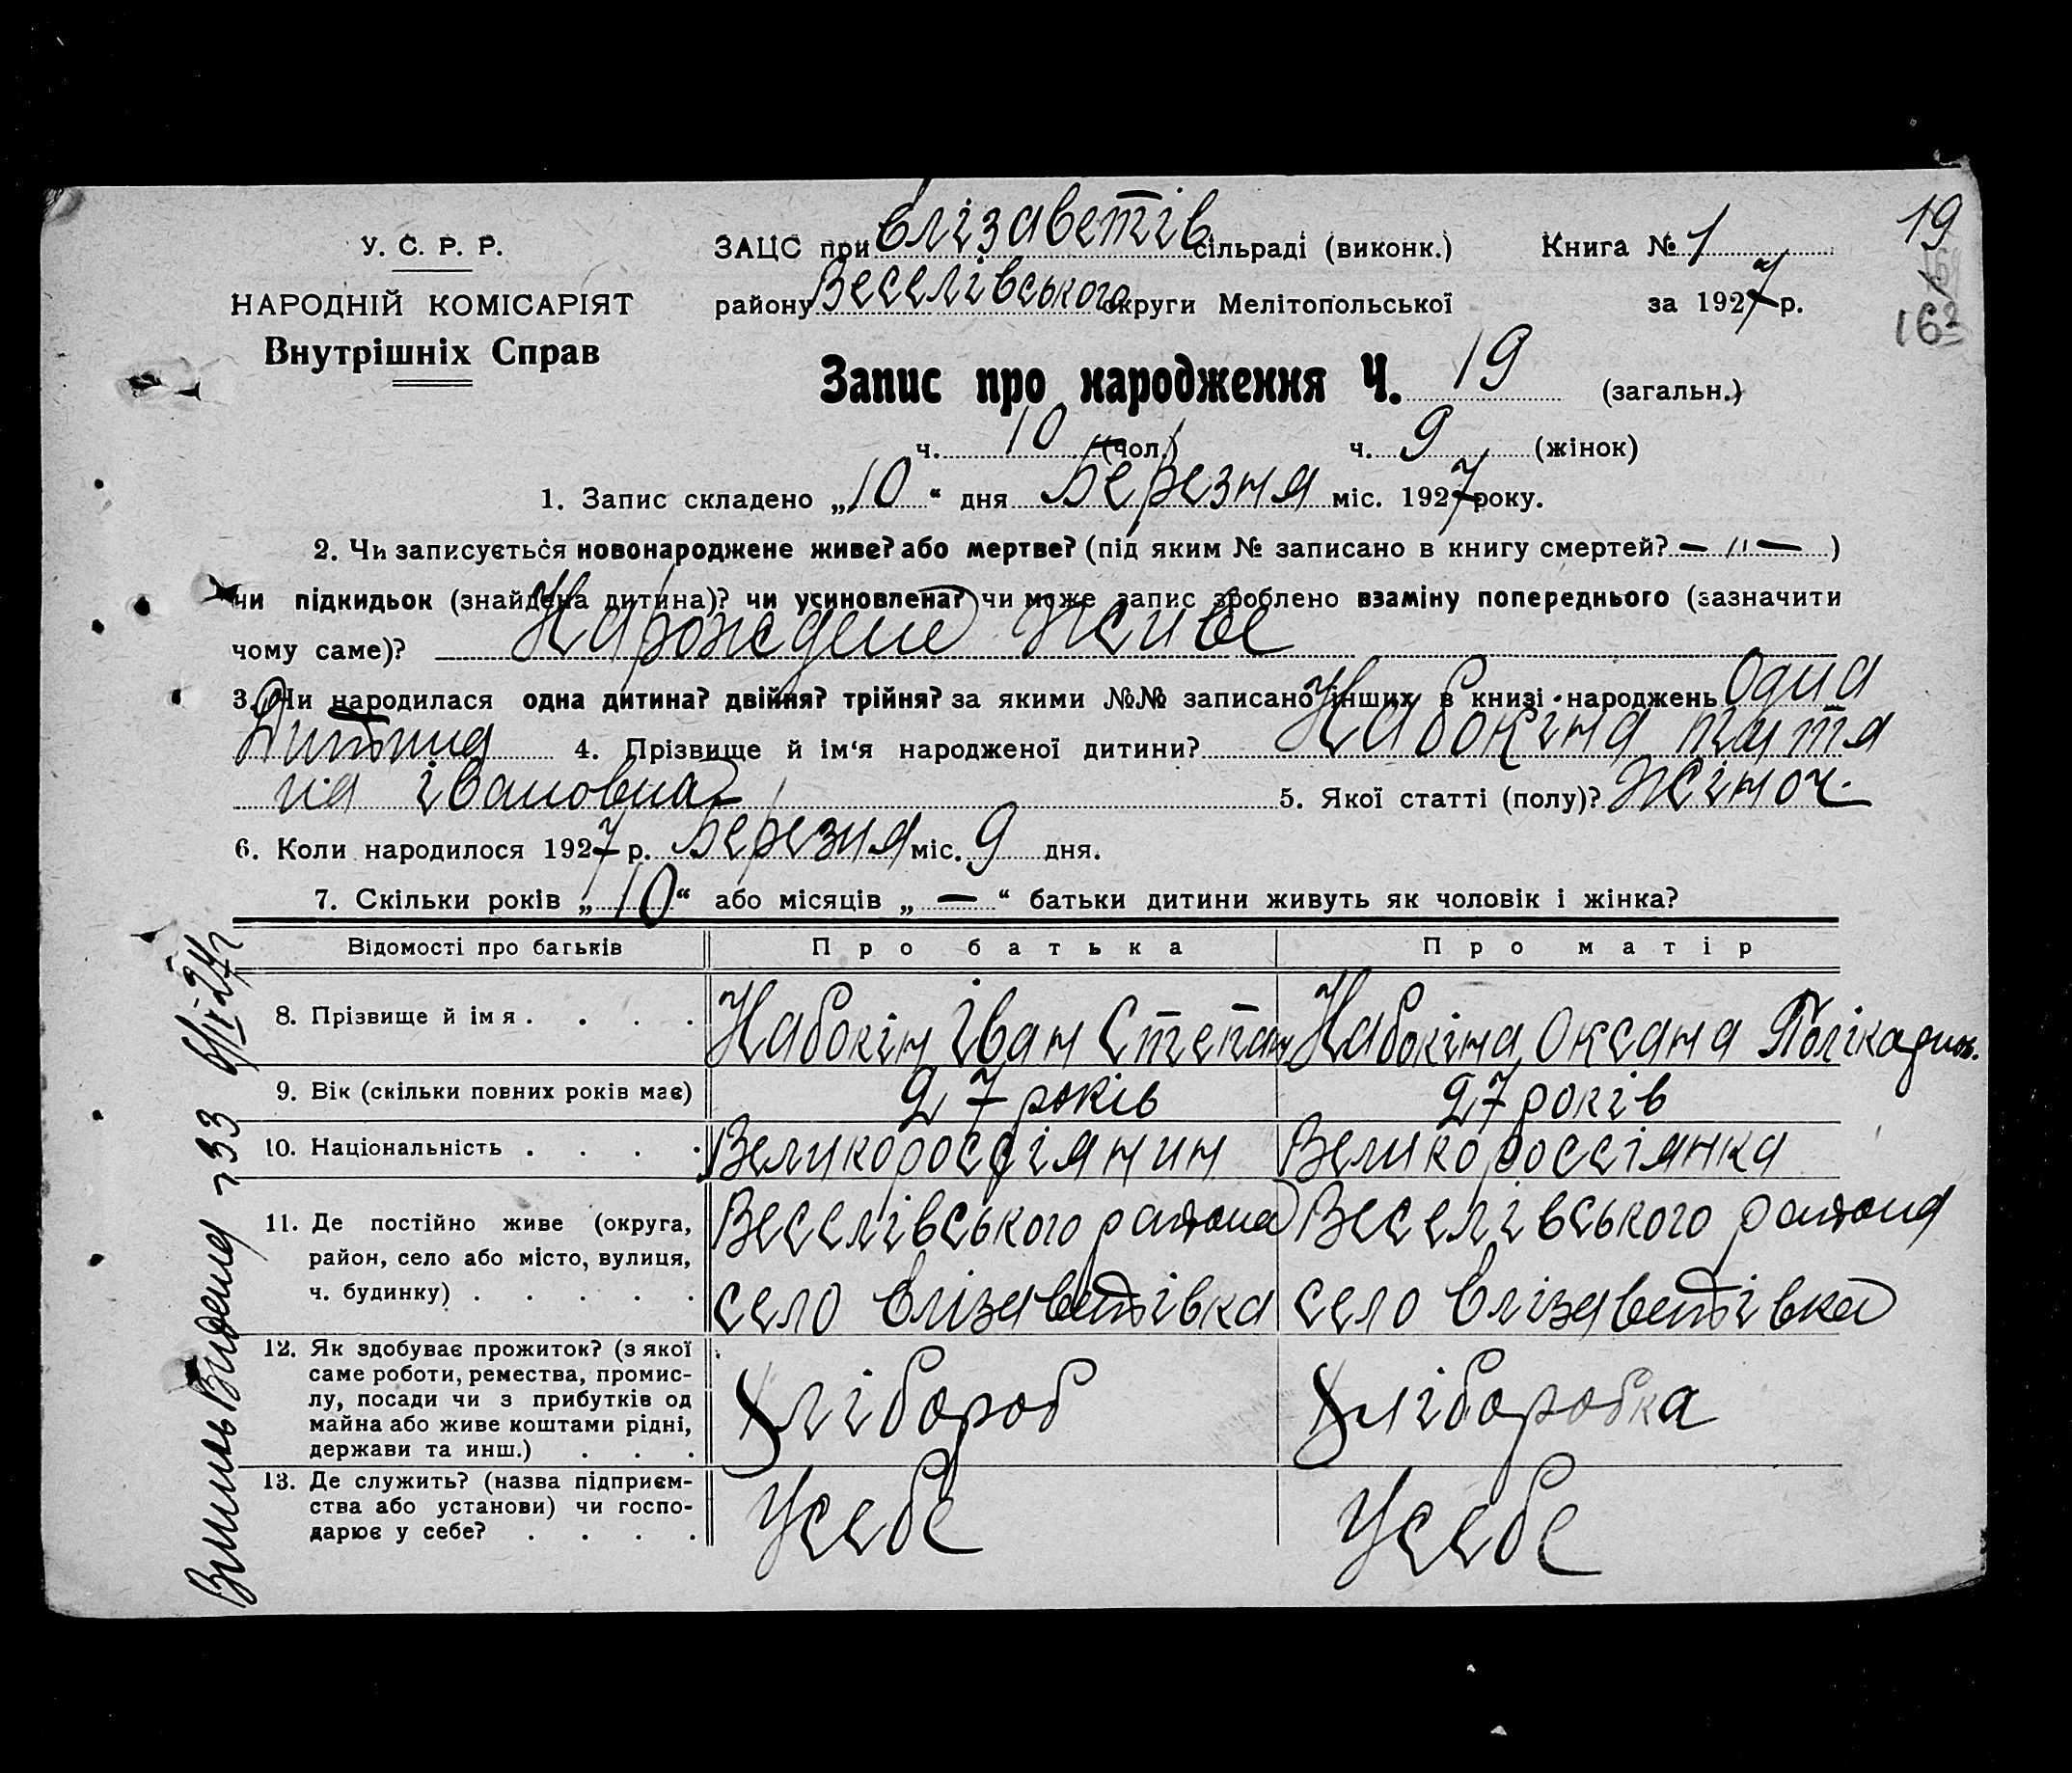 19
У. С. Р. Р.
ЗАЦС при Єлізаветів сільраді (виконк.)
Книга № 1
НАРОДНІЙ КОМІСАРІЯТ
району Веселівського округи Мелітопольської
за 1927 р.
163
Внутрішніх Справ
Запис про народження Ч. 19 (загальн.)
ч. 10 (чол.) ч. 9 (жінок)
1. Запис складено „10“ дня Березня міс. 1927 року.
2. Чи записується новонароджене живе? або мертве? (під яким № записано в книгу смертей? — " — )
чи підкидьок (знайдена дитина)? чи усиновлена? чи може запис зроблено взаміну попереднього (зазначити
чому саме)? Нарождене живе
3. Чи народилася одна дитина? двійня? трійня? за якими №№ записано інших в книзі народжень Одна
Дитина 4. Прізвище й ім‘я народженої дитини? Набокіна
івановна 5. Якої статті (полу)? Жіноч.
6. Коли народилося 1927 р. Березня міс. 9 дня.
7. Скільки років „10“ або місяців „—“ батьки дитини живуть як чоловік і жінка?
Відомості про батьків
Про батька
Про матір
8. Прізвище й імя . . . .
Набокін Іван Степан
Набокіна Оксана
9. Вік (скільки повних років має)
27 років
27 років
10. Національність . . . .
Великороссіянин
Великороссіянка
11. Де постійно живе (округа,
район, село або місто, вулиця,
ч. будинку) . . . . .
Веселівського района
село Єлізаветівка
Веселівського района
село Єлізаветівка
12. Як здобуває прожиток? (з якої
саме роботи, ремества, промис-
лу, посади чи з прибутків од
майна або живе коштами рідні,
держави та инш.) . . .
Хлібороб
Хліборобка
13. Де служить? (назва підприєм-
ства або установи) чи госпо-
дарює у себе? . . . .
Усебе
Усебе